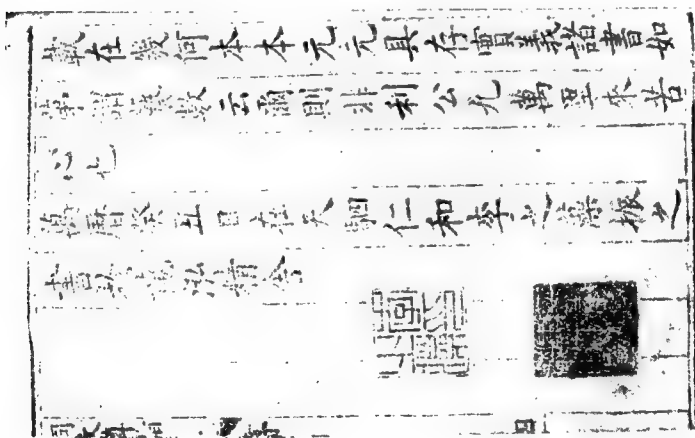 在幾何本本元元具存實義諸書如
第謂藝數云爾則非利公九萬里來苦
心也
萬曆癸丑日在天駟仁和李之藻振之
書於龍泓精舍